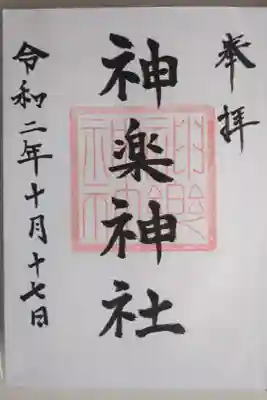 奉拝
神楽神社
令和二年十月十七日